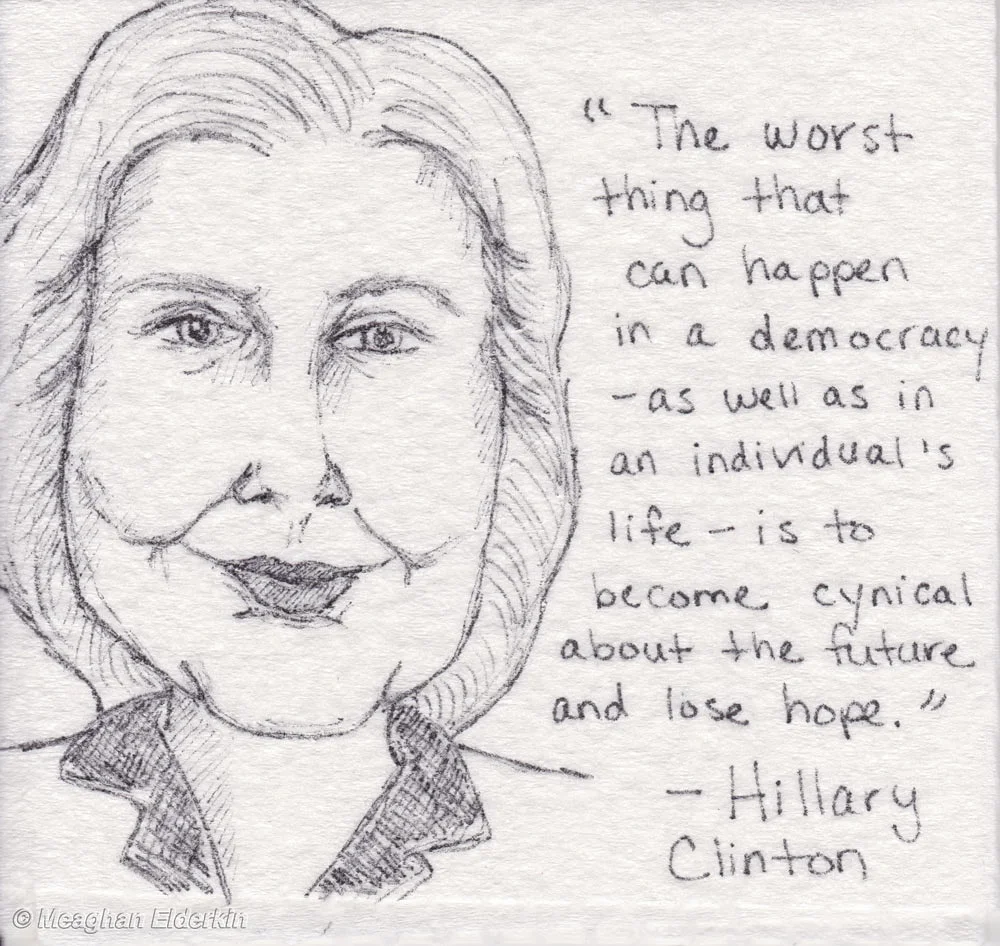 “ The worst
thing that
can happen
in a democracy
- as well as in
an individual's
life - is to
become cynical
about the future
and lose hope.”
- Hillary
Clinton
© Meaghan Elderkin